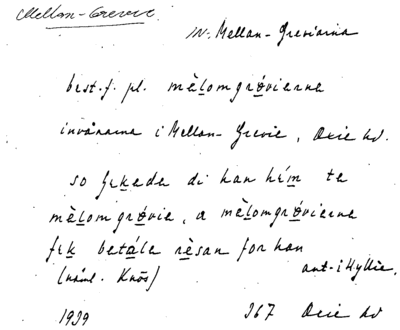 Mellan-Grevie.
N. Mellan-Greviarna
best.f. pl. mèlomgrǿvierne
invånarna i Mellan-Grevie, Oxie hd.
so fɪkede di han hém te
mèlomgrǿvie, a mèlomgrǿvierne
fɪk betále rèsan for han
(näml. Knös) ant. i Hyllie.
1939 267 Oxie hd